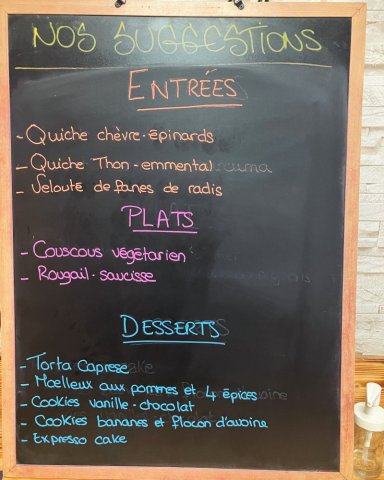 NOS SUGGESTIONS
ENTRÉES
- Quiche chèvre-épinards
- Quiche Thon-emmental
- Velouté de fanes de radis
PLATS
- Couscous végétarien
- Rougail-saucisse
DESSERTS
- Torta Caprese
- Moelleux aux pommes et 4 épices
- Cookies vanille-chocolat
- Cookies bananes et flocon d'avoine
- Expresso cake